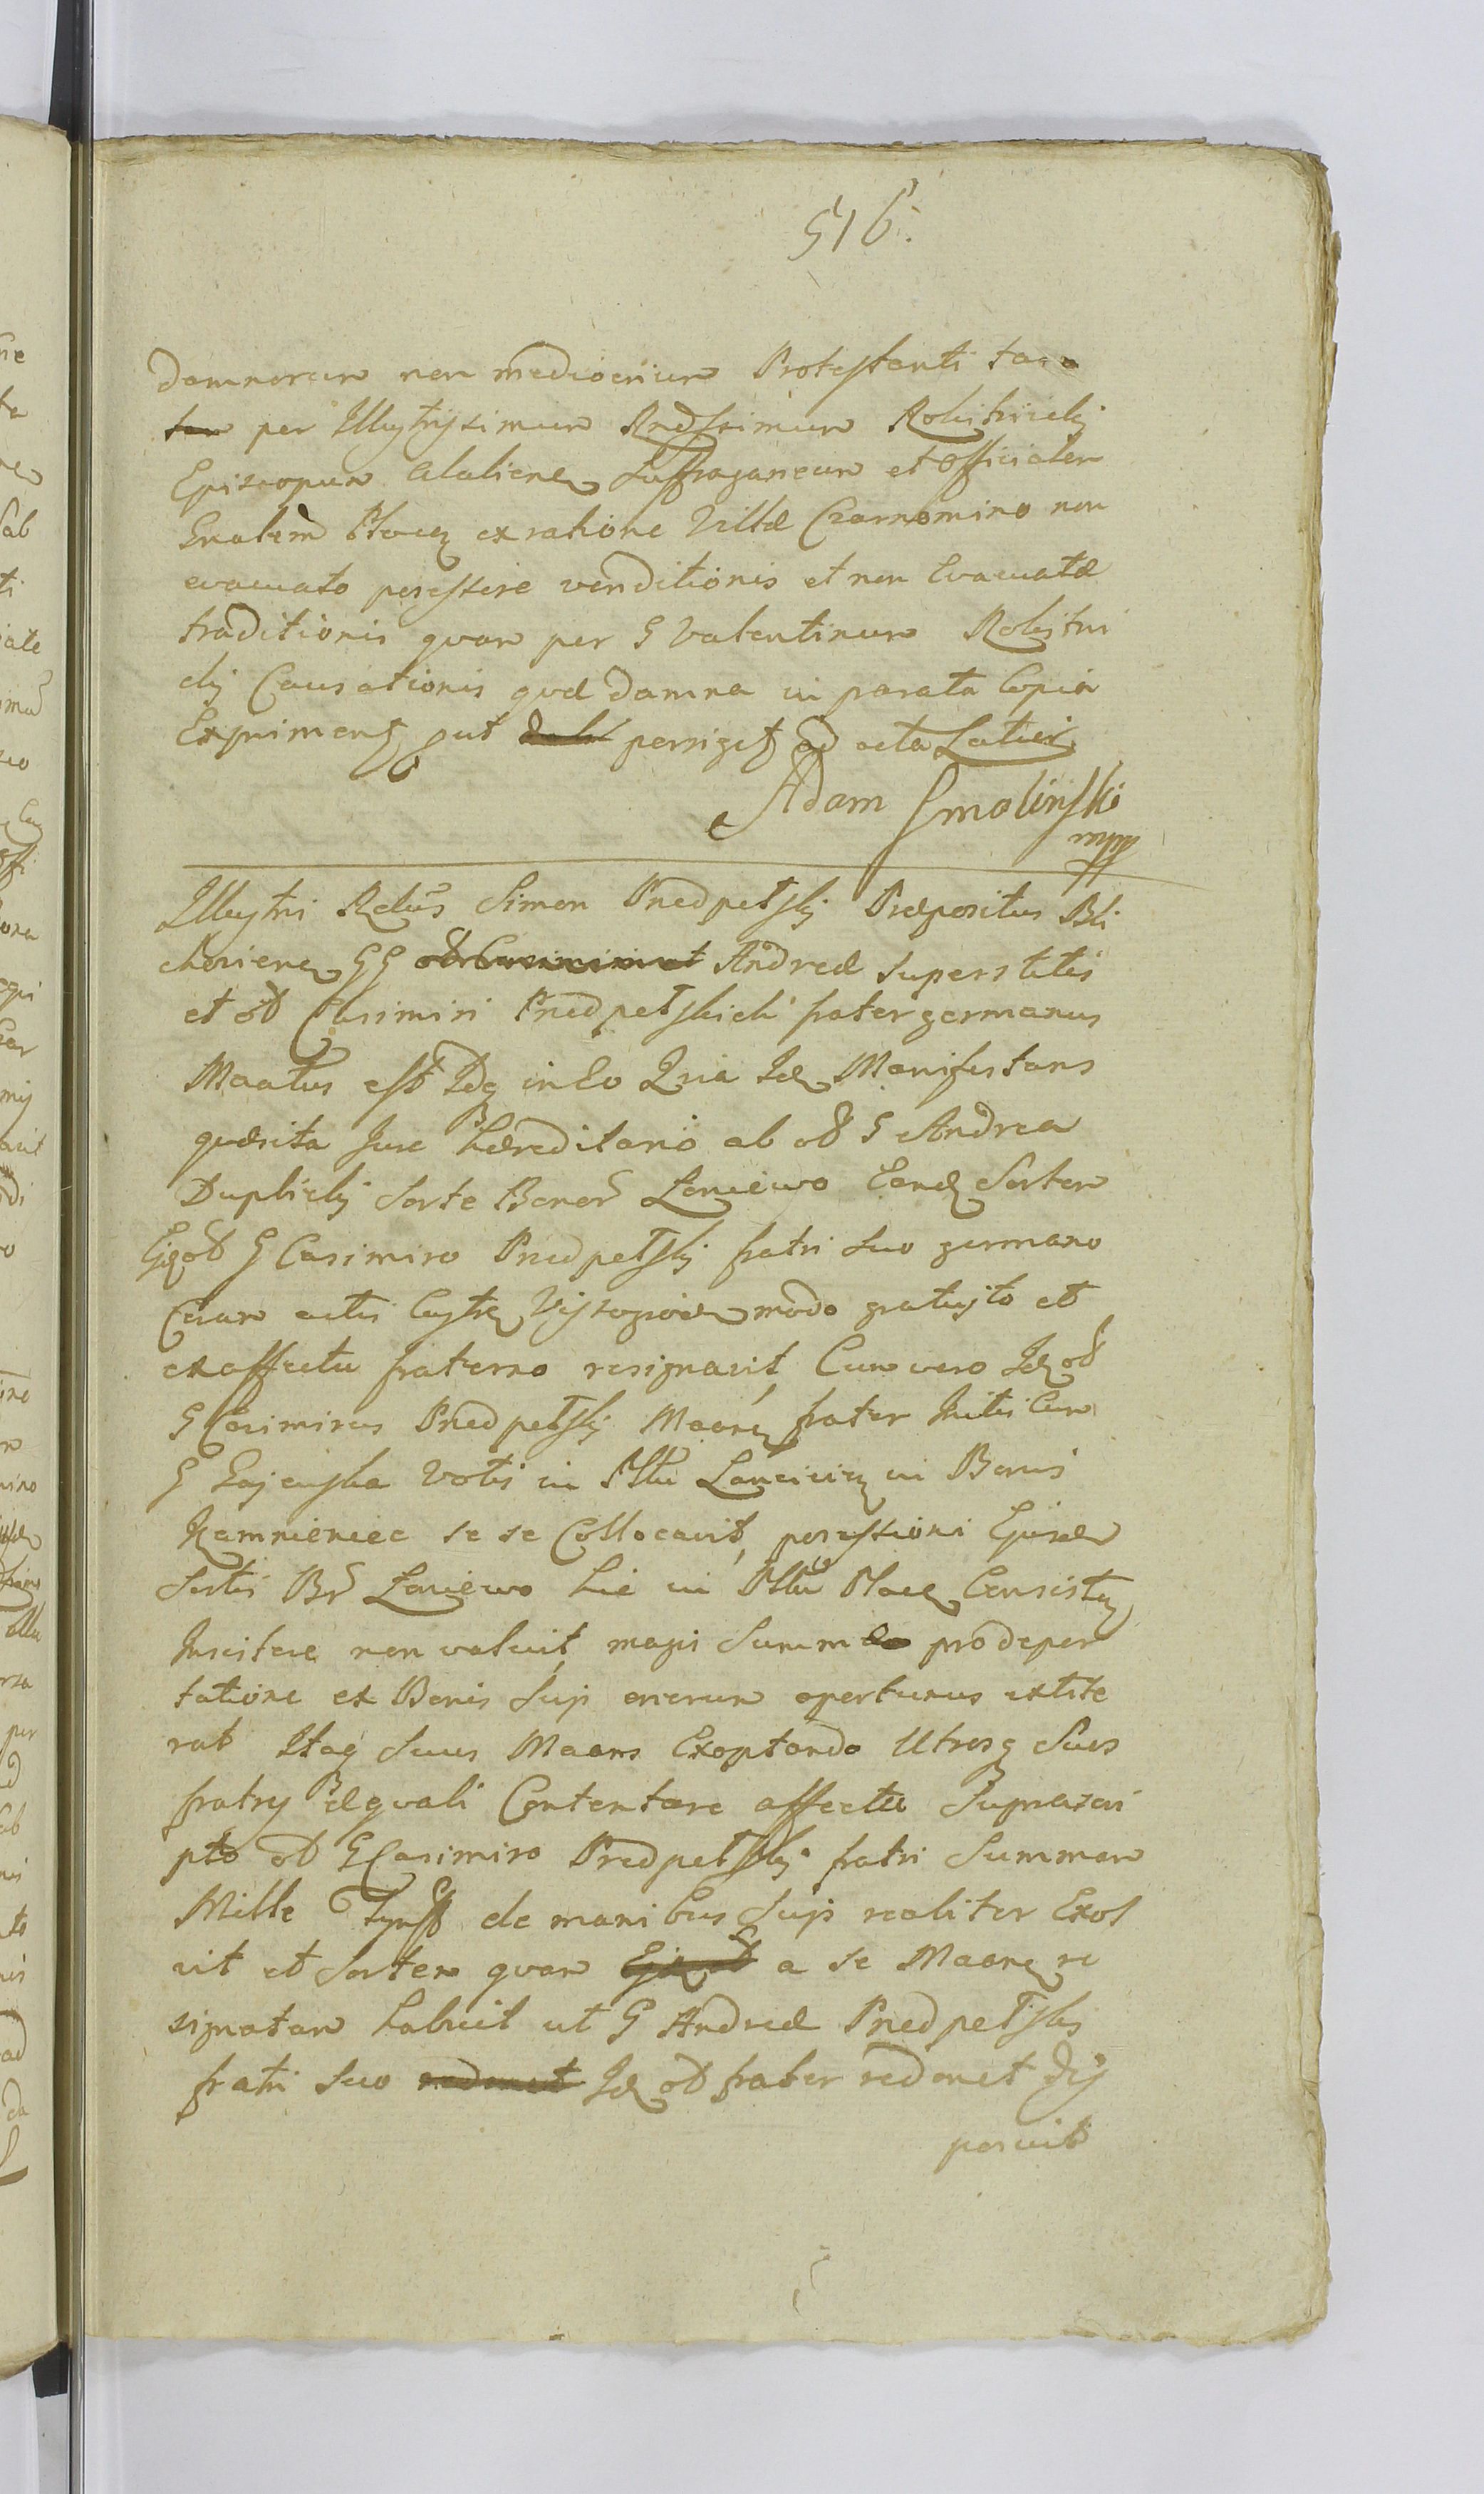 516.
damnorum non mediocrium Protestanti tam
tam per Illustrissimum Rndssimum Robitnicki
Episcopum Alaliens Suffraganeum et Officialem
Gnalem Plocen ex ratione Villæ Czarnomino non
evacuato possessore venditionis et non Evacuatæ
traditionis quam per G Valentinum Robitni
cki Causationis quæ damna in parata Copia
Expriment put perriget ad acta Latius
Adam Smolinski
mpp
Illustri Rdus Simon Przedpełski Præpositus Bli
choviens GG Andreæ Superstitis
et od Casimiri Przedpełskich frater germanus
Maatus est Idq in Eo Quia Id Manifestans
quæsita Jure hæreditario ab od G Andrea
Duplicki Sorte Bonor Laniewo Eand Sortem
Ejd od G Casimiro Przedpełski fratri Suo germano
Coram actis Castr Vissogrod modo gratuito et
ex affectu fraterno resignavit, Cum vero Id od
G Casimirus Przedpełski Maans frater Initis Cum
G Zajenska Votis in Pttu Lancicien in Bonis
Kamnieniec se se Collocavit, possessioni Ejusd
Sortis Br Laniewo hic in Pttu Ploc Consisten
Insistere non valuit, magis Summ pro depor
tatione ex Bonis Suis onerum operturus extite
rat Itaq Suus Maans Exoptando Utrosq Suos
fratres æquali Contentare affectu Suprascri
pto od G Casimiro Przedpełski fratri Summam
Mille Tynff de manibus Suis realiter Exol
vit et Sortem quam a se Maante re
signatam habuit ut G Andreæ Przedpełski
fratri Suo redonet Id od frater redonet dis
posuit